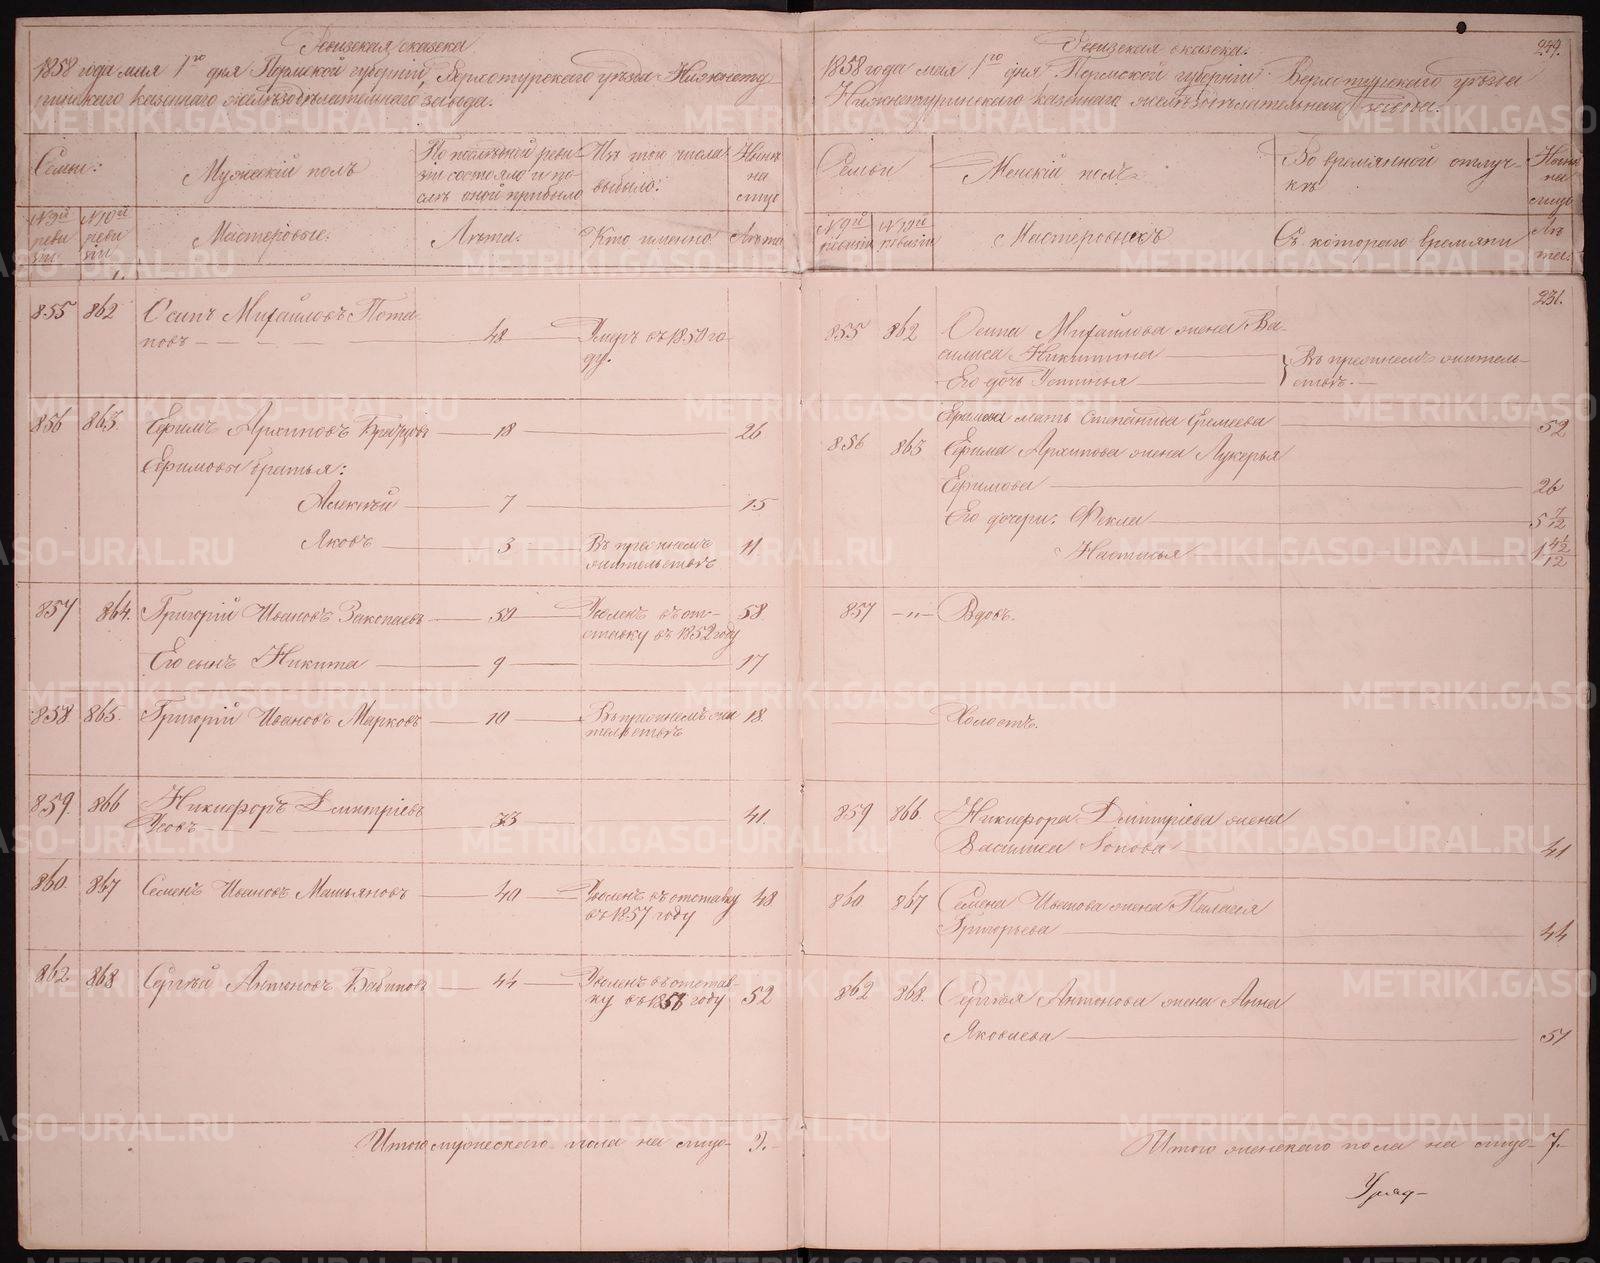 Ревизская сказка
1858 года мая 1го дня Пермской губерніи, Верхотурскаго уѣзда Нижнету
ринскаго казеннаго желѣзодѣлательнаго завода.
Семьи:
Мужескій полъ
По послѣдней реви
зіи состояло и по
слѣ оной прибыло
Изъ того числа
выбыло:
Нынѣ
на
лицо
№ 9й
реви
зіи
№ 10й
реви
зіи
Мастеровые.
Лѣта.
Кто именно
Лѣта
855 862 Осипъ Михайловъ Пота
повъ 48 Умеръ въ 1850 го
ду.
856 863 Ефимъ Архиповъ 18 26
Ефимовы братья:
Алексѣй 7 15
Яковъ 3 Въ прежнемъ 11
жительствѣ
857 864. Григорій Ивановъ 50 Уволенъ въ от- 58
ставку въ 1852 году
Его сынъ Никита 9 17
858 865. Григорій Ивановъ Марковъ 10 Въ прежнемъ жи 18.
тельствѣ
859. 866 Никифоръ Дмитріевъ
Усовъ 33 41.
860. 867 Семенъ Ивановъ 40 Уволенъ въ отставку 48
въ 1857 году
862 868 Сергѣй Антоновъ Бабиновъ 44 Уволенъ въ отстав
ку въ 1856 году 52
Итого мужескаго пола на лицо 9.
Ревизская сказка.
244.
1858 года мая 1го дня Пермской губерніи Верхотурскаго уѣзда
Нижнетуринскаго казеннаго желѣзодѣлательнаго завода.
Семьи
Женскій полъ
Во временной отлуч-
кѣ
Нынѣ
на
лицо
№ 9й
ревизіи
№ 10й
ревизіи
Мастеровыхъ
Съ котораго времяни
Лѣ
та.
231.
855 862 Осипа Михайлова жена Ва-
силиса Никитина
Въ прежнемъ житель-
ствѣ.
Его дочь Устинья
Ефимова мать Степанида Еремеева 52
856 863 Ефима Архипова жена Лукерья
Ефимова 26
Его дочери: Фекла 5 7/12
Настасья
857 -"- Вдовъ.
Холостъ.
859 866. Никифора Дмитріева жена
Василиса 41
860 867 Семена Иванова жена Палагея
Григорьева 44
862 868. Сергѣя Антонова жена Анна
Яковлева 51
Итого женскаго пола на лицо 7.
METRIKI.GASO-URAL.RU